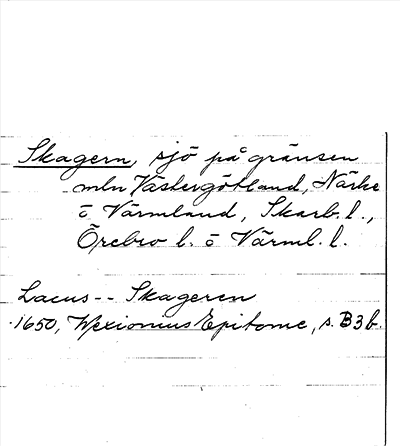 Skagern, sjö på gränsen
mln Västergötland, Närke
o Värmland, Skarb. l.,
Örebro l. o Värml. l.
Lacus -- Skageren
1650, Wexionius Epitome, s. B3b.